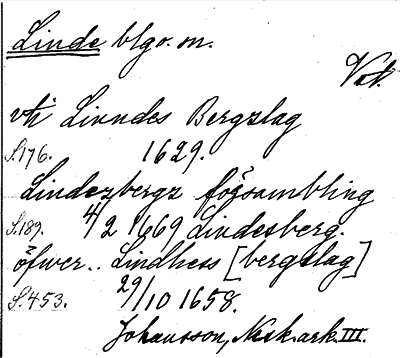 Linde blgo. m.
Vstl.
vti Linndes Bergslag
S.176. 1629.
Lindezbergz försambling
S.189. 4/2 1669 Lindesberg.
öfwer.. Lindhess [bergslag]
S.453. 29/10 1658.
Johansson, Nsk.ark.III.